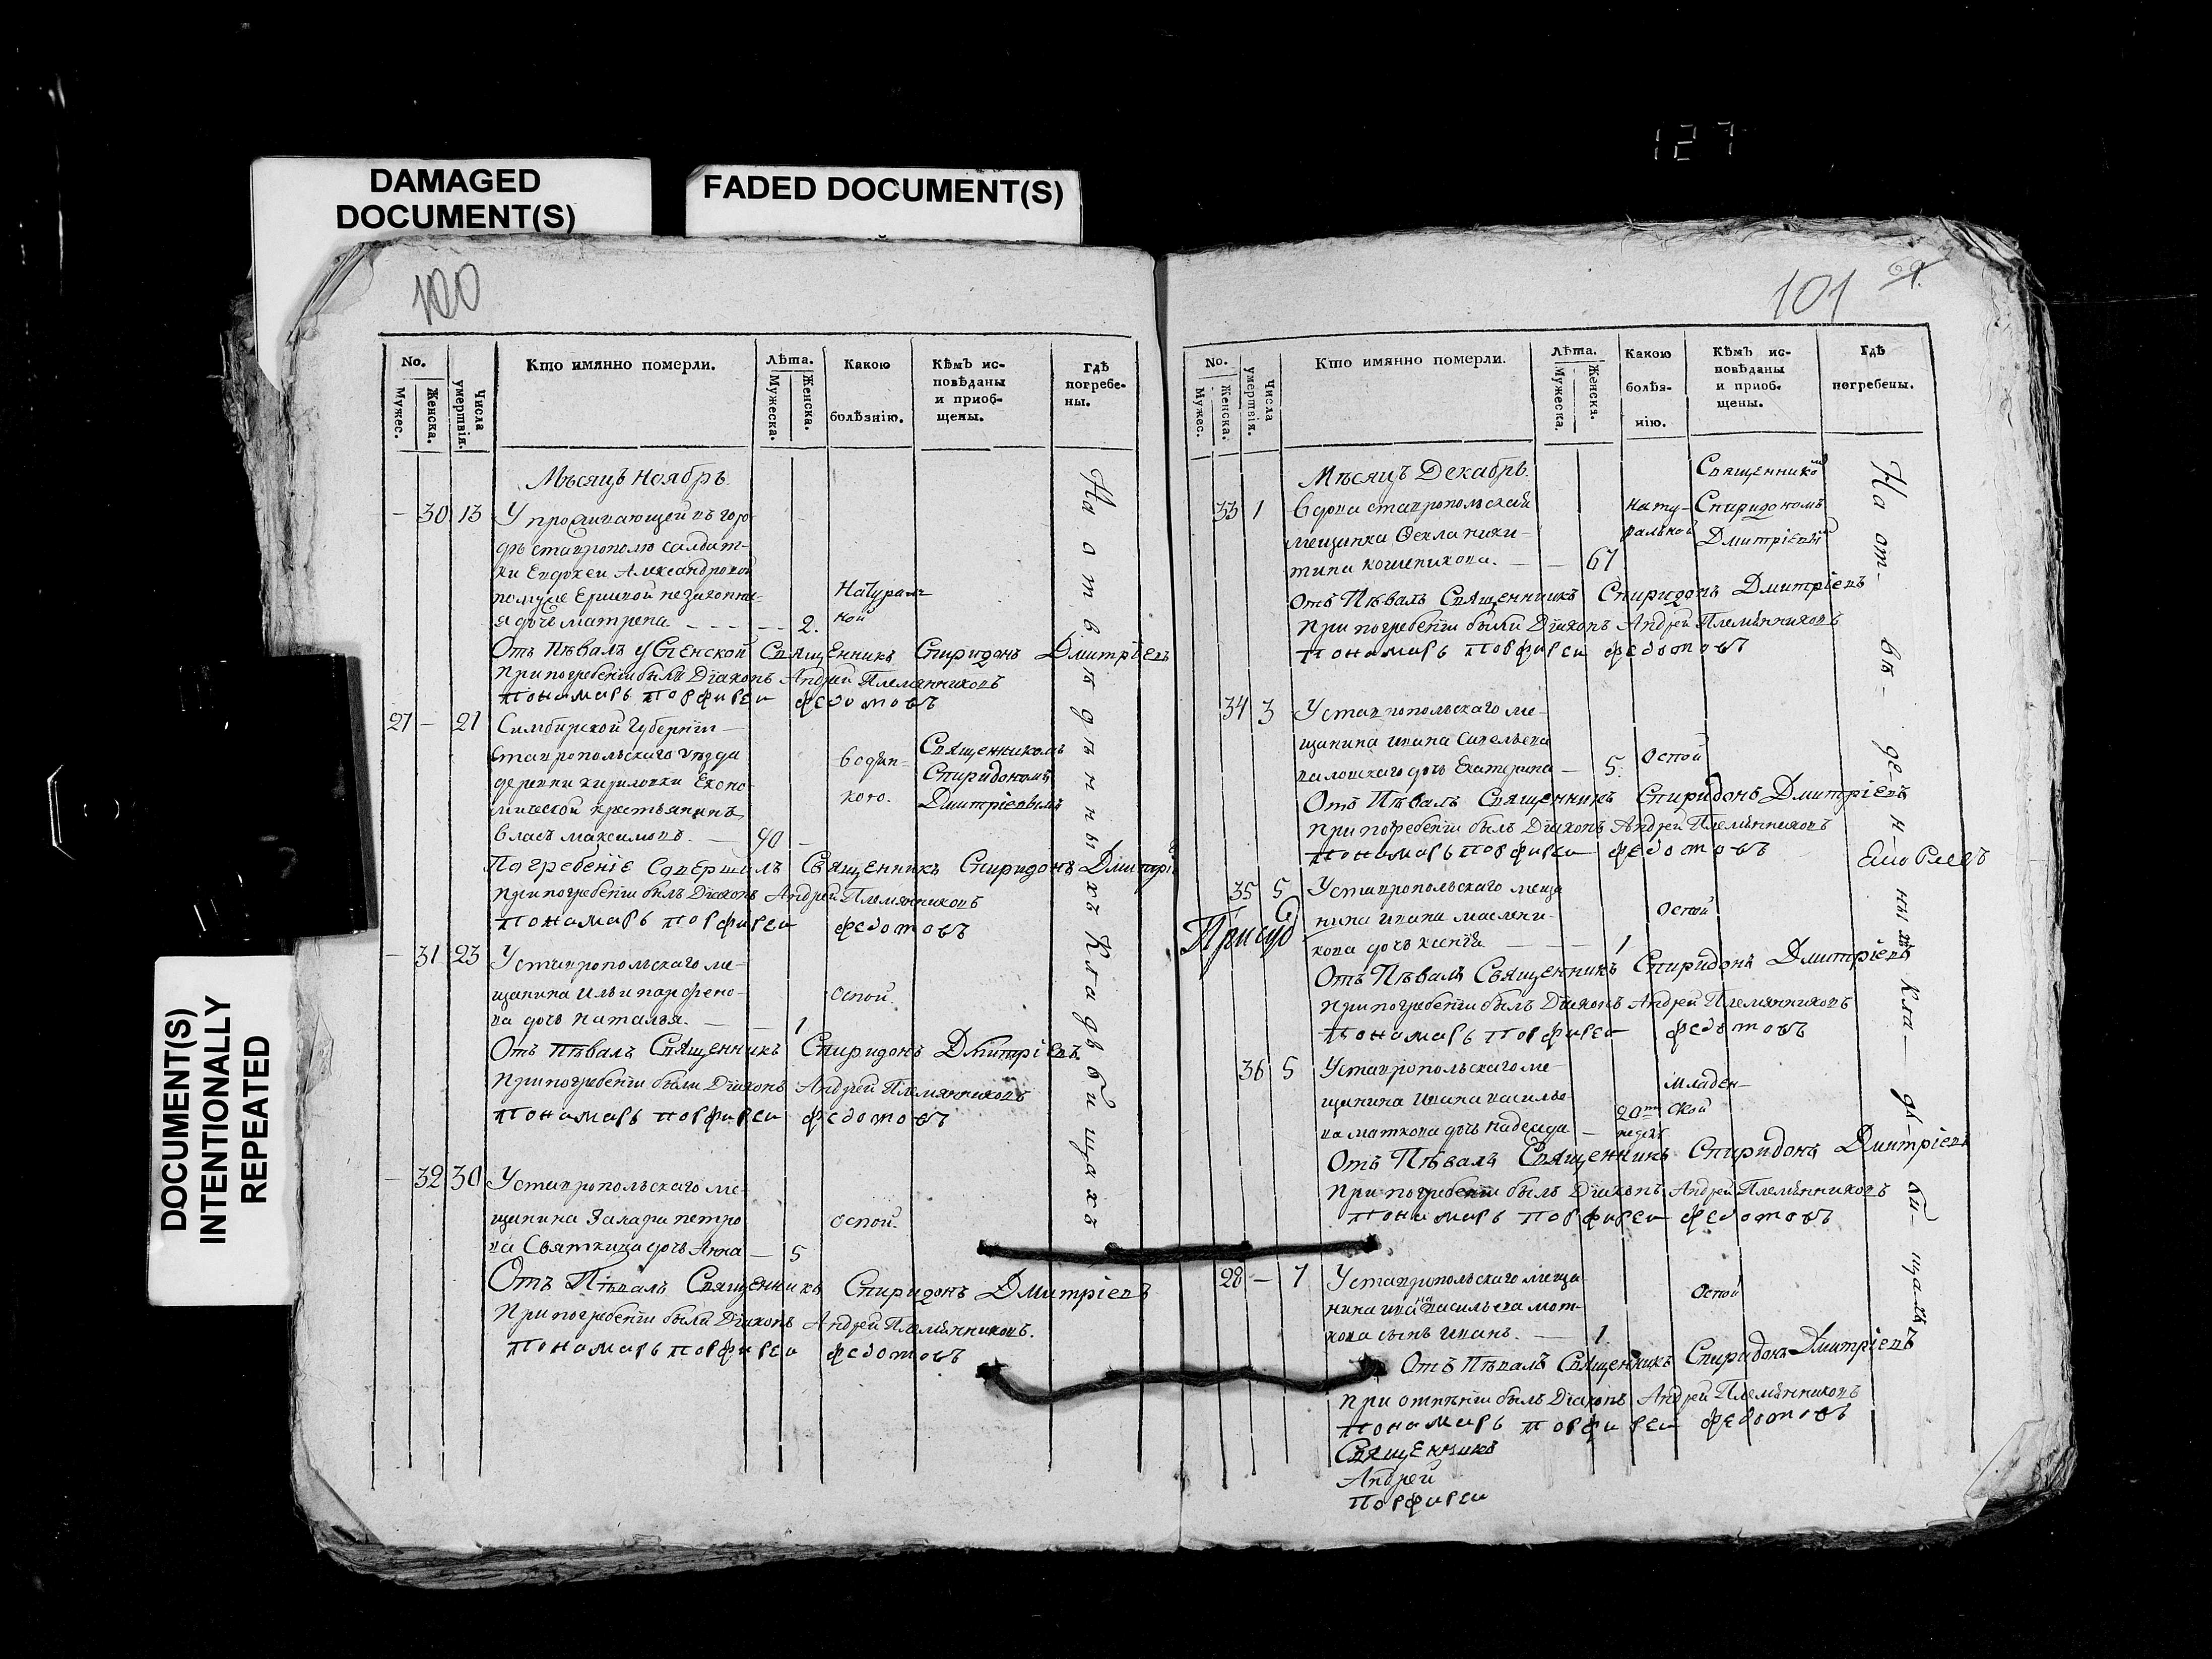 127
DAMAGED
DOCUMENT(S)
FADED DOCUMENT(S)
DOCUMENT(S)
INTENTIONALLY
REPEATED
100
No.
Мужес.
Женска.
Числа умертвія.
Кто имянно померли.
Лѣта.
Мужеска.
Женска.
Какою
болѣзнію.
Кѣмъ ис-
повѣданы
и приоб-
щены.
Гдѣ
погребе-
ны.
Мѣсяцъ Ноябрь.
— 30 13 У проживающей въ горо-
дѣ ставрополѣ салдат-
ки Евдокеи Александровой
помуже незаконна-
я дочь матрена — — — 2.
Натураль-
ной
Отъ Пѣвалъ Священникъ Спиридонъ Дмитріевъ
при погребеніи были Діаконъ Андрей Племянниковъ
пономарь порфирей федотовъ
27 — 21 Симбирской Губерніи
ставропольскаго уѣзда
деревни кириловки Еконо-
мической крестьянинъ
власъ максимовъ. — 90
водян-
кою.
Священникомъ
Спиридономъ
Дмитріевымъ
Погребеніе Совершалъ Священникъ Спиридонъ Дмитрі
при погребеніи былъ Діаконъ Андрей Племянниковъ
пономарь порфирей федотовъ
— 31 23 У ставропольскаго ме-
щанина Ильи парфено-
ва дочь наталья. — — 1
оспой.
Отъ пѣвалъ Священникъ Спиридонъ Дмитріевъ
При погребеніи были Діаконъ Андрей Племянниковъ
пономарь порфирей федотовъ
— 32 30 У ставропольскаго ме-
щанина Захара петро
ва Святкина дочь Анна — 5
оспой.
Отъ Пѣвалъ Священникъ Спиридонъ Дмитріевъ
При погребеніи были Діаконъ Андрей Племянниковъ.
пономарь порфирей федотовъ
На отвѣденныхъ Кладбищахъ
101
69.
No.
Мужес.
Женска.
Числа умертвія.
Кто имянно померли.
Лѣта.
Мужеска.
Женска.
Какою
болѣз-
нію.
Кѣмъ ис-
повѣданы
и приоб-
щены.
Гдѣ
погребены.
Мѣсяцъ Декабрь.
33 1 вдова ставропольская
мещанка Фекла ники-
тина — — 67
нату-
ральной
Священником
Спиридономъ
Дмитріевым
Отъ Пѣвалъ Священникъ Спиридонъ Дмитріевъ
при погребеніи были Діаконъ Андрей Племянниковъ
пономарь порфирей федотовъ
34 3 У ставропольскаго ме-
щанина ивана Савельева
дочь Екатерина — 5.
оспой
Отъ Пѣвалъ Священникъ Спиридонъ Дмитріевъ
при погребеніи былъ Діаконъ Андрей Племянниковъ
пономарь порфирей федотовъ
35 5 У ставропольскаго меща
нина ивана маслени-
кова дочь ксенія — — 1
оспой
Отъ Пѣвалъ Священникъ Спиридонъ Дмитріевъ
при погребеніи былъ Діаконъ Андрей Племянниковъ
пономарь порфирей федотовъ
36 5 У ставропольскаго ме-
щанина ивана василье-
ва маткова дочь надежда —
20ти
недѣль
младен-
ской
Отъ Пѣвалъ Священникъ Спиридонъ Дмитріевъ
при погребеніи былъ Діаконъ Андрей Племянниковъ
пономарь порфирей федотовъ
28 — 7 У ставропольскаго меща
нина ивана васильева мот-
кова сынъ иванъ. — 1.
оспой
Отъ пѣвалъ Священникъ Спиридонъ Дмитріевъ
При отпѣніи былъ Діаконъ Андрей Племянниковъ
пономарь порфирей федотовъ
Священникъ
Андрей
Порфирей
На от- вѣ- де- н ныхъ кла- дь- би- щахъ